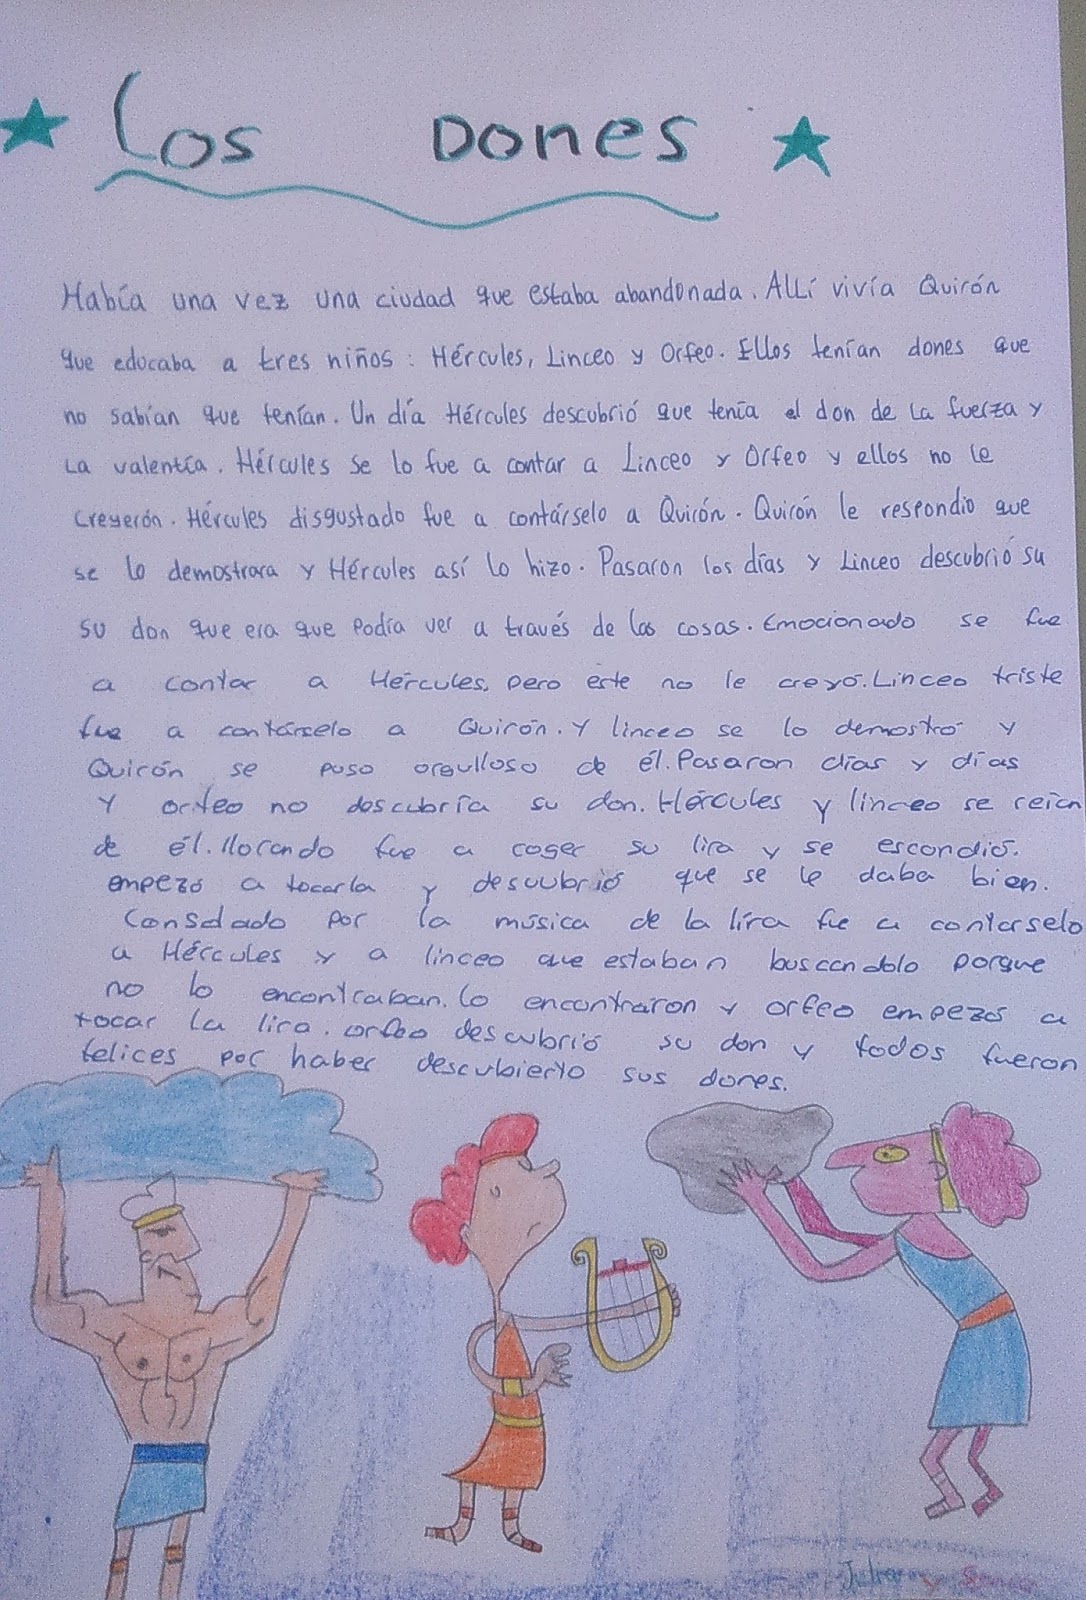 Los Dones
Había una vez una ciudad que estaba abandonada. Allí vivía Quirón
que educaba a tres niños: Hércules, Linceo y Orfeo. Ellos tenían dones que
no sabían que tenían. Un día Hércules descubrió que tenía el don de la fuerza y
la valentía. Hércules se lo fue a contar a Linceo y Orfeo y ellos no le
creyerón. Hércules disgustado fue a contárselo a Quirón. Quirón le respondio que
se lo demostrara y Hércules así lo hizo. Pasaron los días y Linceo descubrió su
su don que era que podía ver a través de las cosas. Emocionado se fue
a contar a Hércules, pero éste no le creyó. Linceo triste
fue a contárselo a Quirón. Y linceo se lo demostró y
Quirón se puso orgulloso de él. Pasaron días y días
y orfeo no descubría su don. Hércules y linceo se reían
de él. llorando fue a coger su lira y se escondió.
empezó a tocarla y descuubrió que se le daba bien.
Consolado por la música de la lira fue a contarselo
a Hércules y a linceo que estaban buscandolo porque
no lo encontraban. lo encontraron y orfeo empezó a
tocar la lira. orfeo descubrió su don y todos fueron
felices por haber descubierto sus dones.
y